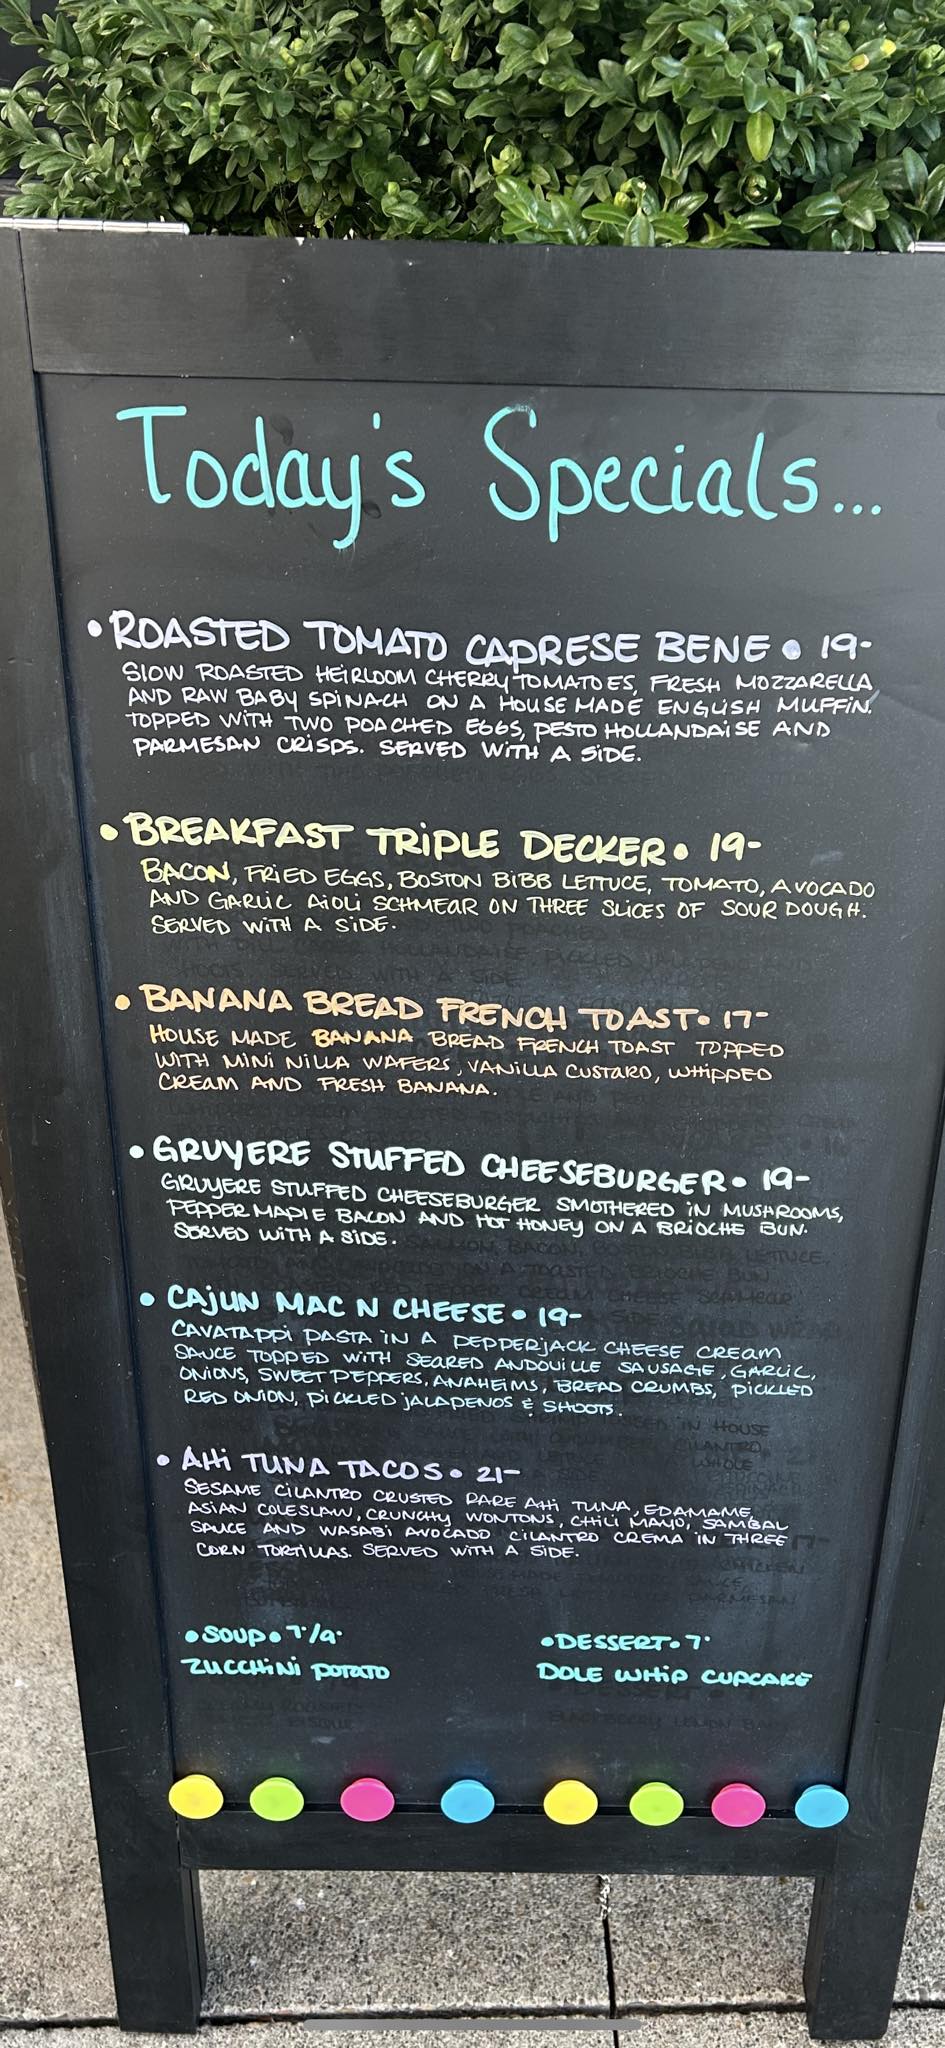 Today's Specials...
• ROASTED TOMATO CAPRESE BENE • 19-
SLOW ROASTED HEIRLOOM CHERRY TOMATOES, FRESH MOZZARELLA
AND RAW BABY SPINACH ON A HOUSE MADE ENGLISH MUFFIN.
TOPPED WITH TWO POACHED EGGS, PESTO HOLLANDAISE AND
PARMESAN CRISPS. SERVED WITH A SIDE.
• BREAKFAST TRIPLE DECKER • 19-
BACON, FRIED EGGS, BOSTON BIBB LETTUCE, TOMATO, AVOCADO
AND GARLIC AIOLI SCHMEAR ON THREE SLICES OF SOUR DOUGH.
SERVED WITH A SIDE.
• BANANA BREAD FRENCH TOAST • 17-
HOUSE MADE BANANA BREAD FRENCH TOAST TOPPED
WITH MINI NILLA WAFERS, VANILLA CUSTARD, WHIPPED
CREAM AND FRESH BANANA.
• GRUYERE STUFFED CHEESEBURGER • 19-
GRUYERE STUFFED CHEESEBURGER SMOTHERED IN MUSHROOMS,
PEPPER MAPLE BACON AND HOT HONEY ON A BRIOCHE BUN.
SERVED WITH A SIDE.
• CAJUN MAC N CHEESE • 19-
CAVATAPPI PASTA IN A PEPPERJACK CHEESE CREAM
SAUCE TOPPED WITH SEARED ANDOUILLE SAUSAGE, GARLIC,
ONIONS, SWEET PEPPERS, ANAHEIMS, BREAD CRUMBS, PICKLED
RED ONION, PICKLED JALAPENOS & SHOOTS.
• AHI TUNA TACOS • 21-
SESAME CILANTRO CRUSTED RARE AHI TUNA, EDAMAME,
ASIAN COLESLAW, CRUNCHY WONTONS, CHILI MAYO, SAMBAL
SAUCE AND WASABI AVOCADO CILANTRO CREMA IN THREE
CORN TORTILLAS. SERVED WITH A SIDE.
• SOUP • 7-/9-
ZUCCHINI POTATO
• DESSERT • 7-
DOLE WHIP CUPCAKE